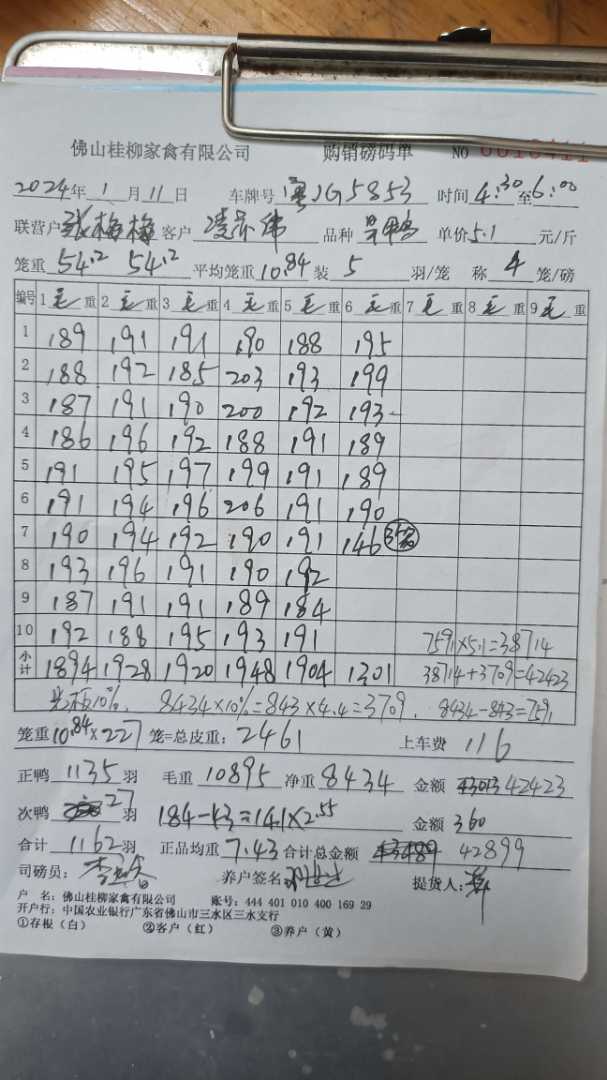 佛山桂柳家禽有限公司 购销磅码单 NO
2024年 1月 11日 车牌号 粤JG5853 时间 4:30至6:00
联营户 张梅梅 客户 品种 单价 5.1 元/斤
笼重 54.2 54.2 平均笼重 10.84 装 5 羽/笼 称 4 笼/磅
编号 1 毛重 2 毛重 3 毛重 4 毛重 5 毛重 6 毛重 7 毛重 8 毛重 9 毛重
1 189 191 191 190 188 195
2 188 192 185 203 193 199
3 187 191 190 200 192 193
4 186 196 192 188 191 189
5 191 195 197 199 191 189
6 191 194 196 206 191 190
7 190 194 192 190 191 146 35羽
8 193 196 191 190 192
9 187 191 191 189 184
10 192 188 195 193 191 7591×5.1=38714
小计 1894 1928 1920 1948 1904 1301 38714+3709=42423
光板10%. 8434×10%=843×4.4=3709. 8434-843=7591
笼重 10.84×227 笼=总皮重: 2461 上车费 116
正鸭 1135 羽 毛重 10895 净重 8434 金额 42423
次鸭 27 羽 184-43=141×2.55 金额 360
合计 1162 羽 正品均重 7.43 合计总金额 42899
司磅员: 养户签名: 提货人:
户 名: 佛山桂柳家禽有限公司 账号: 444 401 010 400 169 29
开户行: 中国农业银行广东省佛山市三水区三水支行
①存根(白) ②客户(红) ③养户(黄)